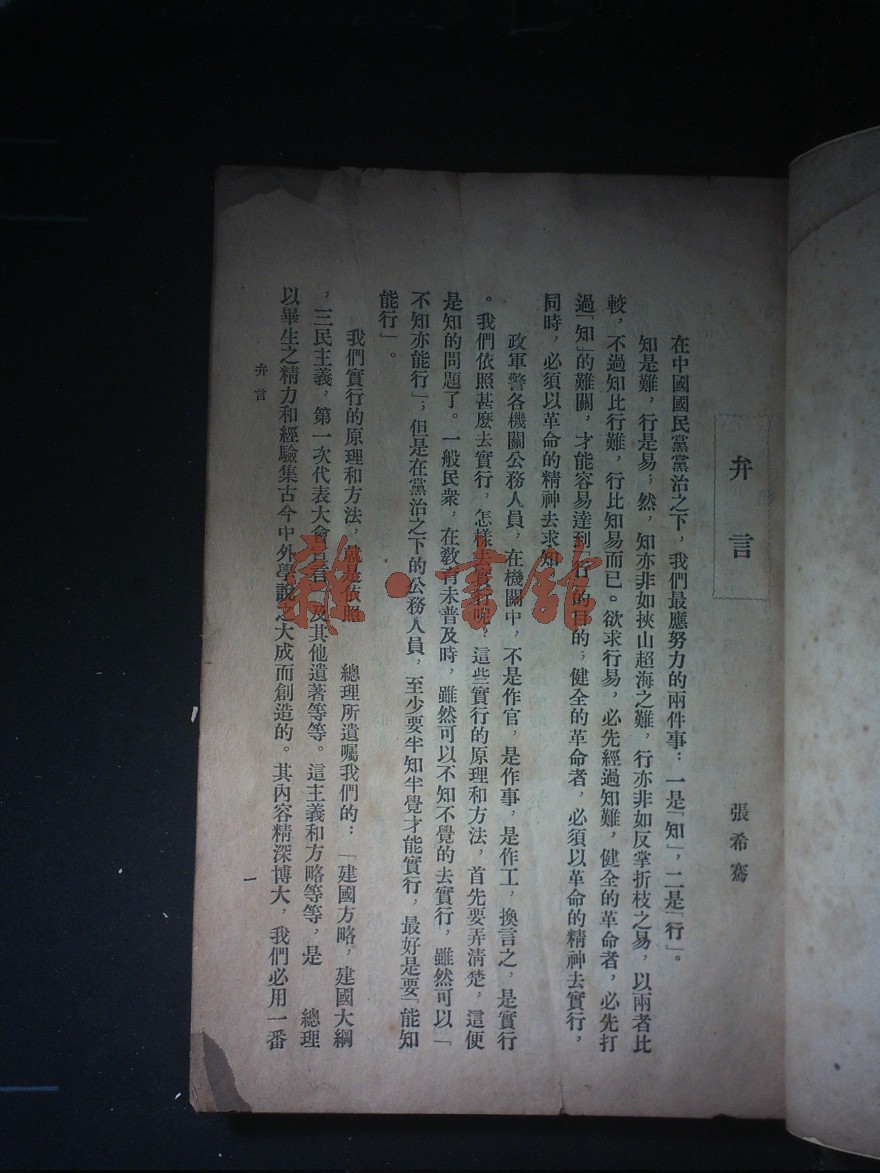 弁言
張希騫
在中國國民黨黨治之下，我們最應努力的兩件事：一是「知」，二是「行」。
知是難，行是易；然，知亦非如挾山超海之難，行亦非如反掌折枝之易，以兩者比
較，不過知比行難，行比知易而已。欲求行易，必先經過知難，健全的革命者，必先打
過「知」的難關，才能容易達到「行」的目的；健全的革命者，必須以革命的精神去實行，
同時，必須以革命的精神去求知
政軍警各機關公務人員，在機關中，不是作官，是作事，是作工，換言之，是實行
。我們依照甚麼去實行，怎樣去實行呢？這些實行的原理和方法，首先要弄清楚，這便
是知的問題了。一般民衆，在教育未普及時，雖然可以不知不覺的去實行，雖然可以「
不知亦能行」；但是在黨治之下的公務人員，至少要半知半覺才能實行，最好是要「能知
能行」。
我們實行的原理和方法，就是依照　總理所遺囑我們的：「建國方略，建國大綱
，三民主義，第一次代表大會宣言　及其他遺著等等。這主義和方略等等，是　總理
以畢生之精力和經驗集古今中外學說之大成而創造的。其內容精深博大，我們必用一番
弁言
一
雜·書館